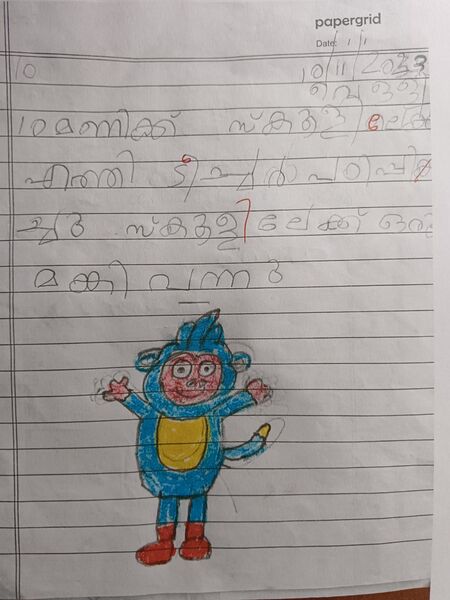 papergrid
Date: / /
10
10/11/2023
വെള്ളി
10 മണിക്ക് സ്കൂളിലേക്ക്
എത്തി ടീച്ചർ പഠിപ്പി
ച്ചു സ്കൂളിലേക്ക് ഒരു
മങ്കി വന്നു